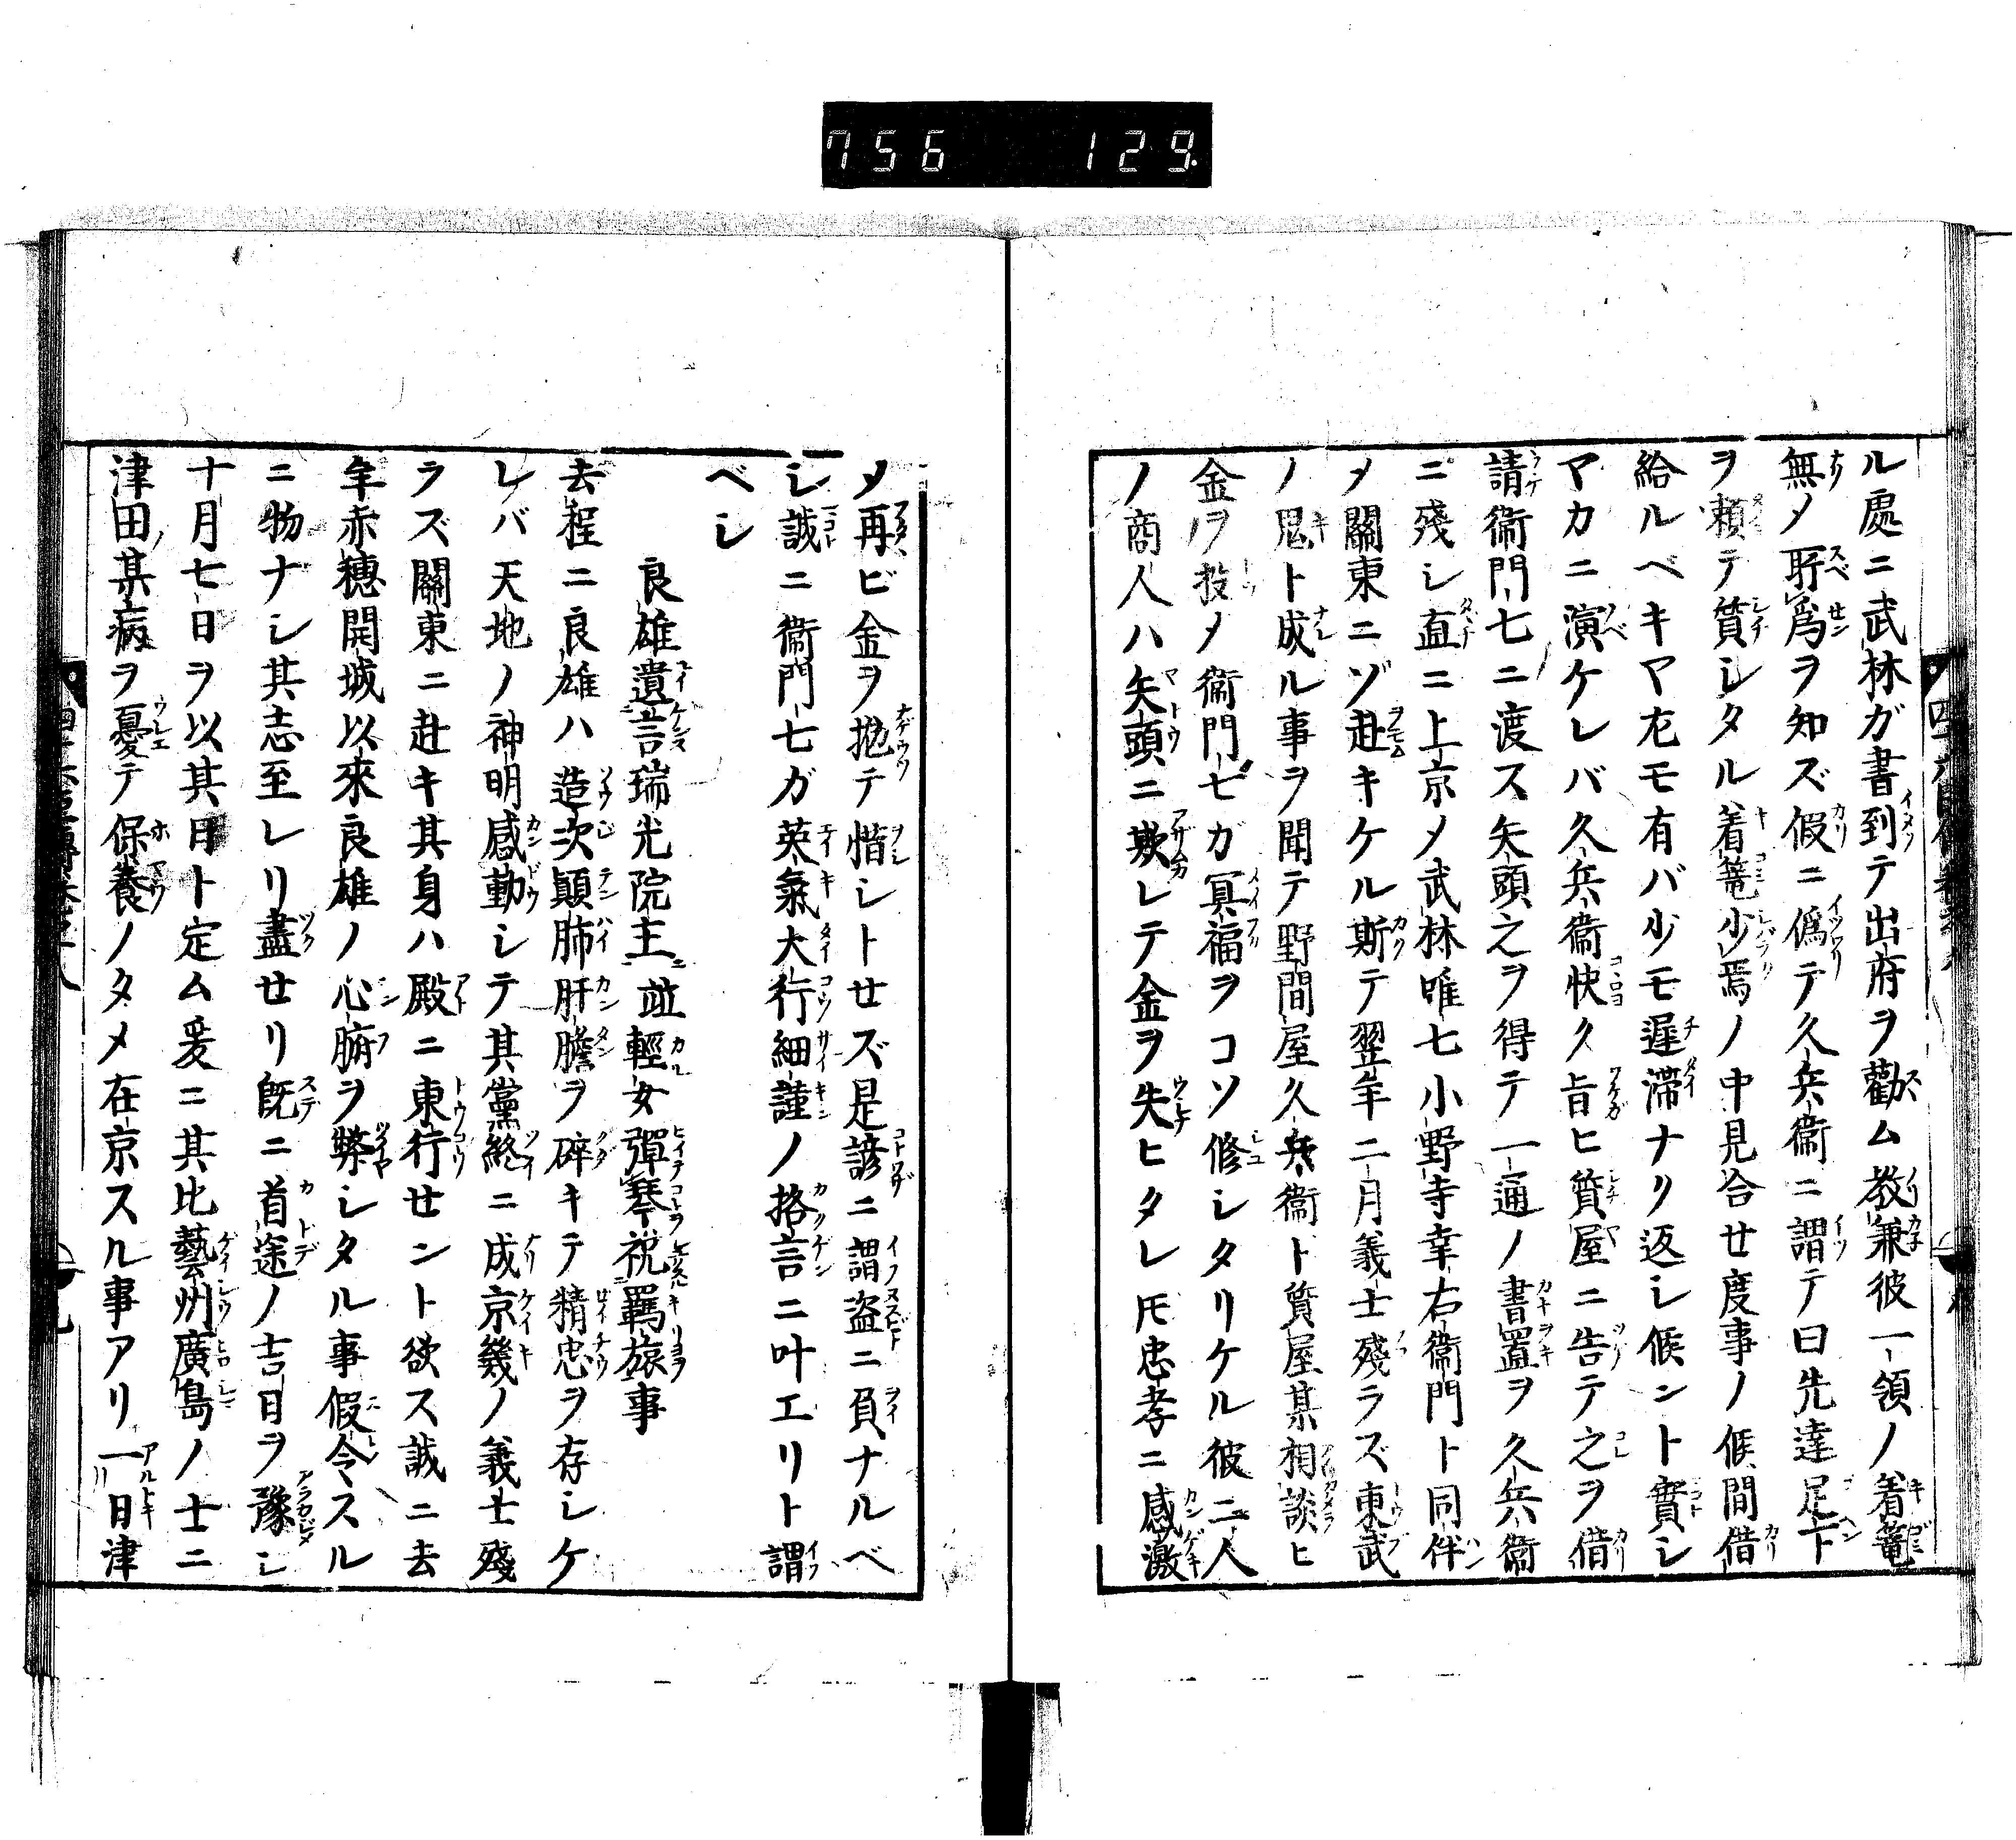 756 129
ル處ニ武林ガ書到テ出府ヲ勸ム教兼彼一領ノ着篭
無メ所爲ヲ知ズ假ニ僞テ久兵衞ニ謂テ曰先達足下
ヲ頼テ質シタル着篭少焉ノ中見合せ度事ノ候間借
給ルベキマ尤モ有バ少モ遲滯ナリ返シ候ント實シ
マカニ演ケレバ久兵衞快ク旨ヒ質屋ニ告テ之ヲ借
請衞門七ニ渡ス矢頭之ヲ得テ一通ノ書置ヲ久兵衞
ニ殘シ直ニ上京メ武林唯七小野寺幸右衞門ト同伴
メ關東ニゾ赴キケル斯テ翌年二月義士殘ラズ東武
ノ鬼ト成ル事ヲ聞テ野間屋久兵衞ト質屋某相談ヒ
金ヲ投メ衞門七ガ冥福ヲコソ修シタリケル彼二人
ノ商人ハ矢頭ニ欺レテ金ヲ失ヒタレ𪜈忠孝ニ感激
メ再ビ金ヲ抛テ惜シトせズ是諺ニ謂盗ニ負ナルベ
シ誠ニ衞門七ガ英氣大行細謹ノ格言ニ叶エリト謂
ベシ
良雄遺言瑞光院主並輕女彈琴祝羈旅事
去程ニ良雄ハ造次顚肺肝膽ヲ碎キテ精忠ヲ存シケ
レバ天地ノ神明感動シテ其黨終ニ成京畿ノ義士殘
ラズ關東ニ赴キ其身ハ殿ニ東行せント欲ス誠ニ去
年赤穗開城以來良雄ノ心腑ヲ弊シタル事假令スル
ニ物ナシ其志至レリ盡せリ既ニ首途ノ吉日ヲ豫シ
十月七日ヲ以其日ト定ム爰ニ其比藝州廣島ノ士ニ
津田某病ヲ憂テ保養ノタメ在京スル事アリ一日津